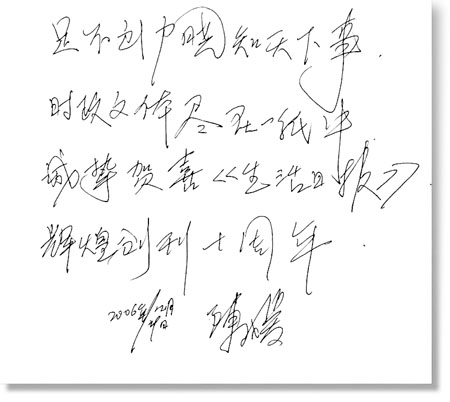 足不出户 知天下事.
时政文体尽在一纸中
诚挚贺喜《生活日报》
辉煌创刊十周年.
2006年 陳